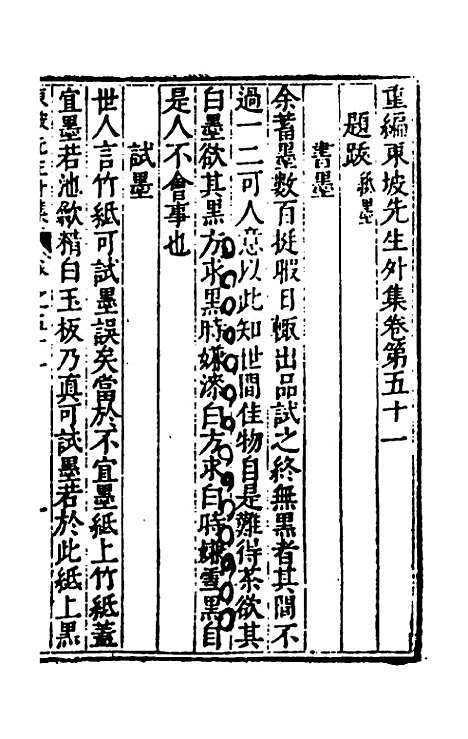 重編東坡先生外集卷第五十一
題跋紙墨
書墨
余蓄墨數百挺暇日輒出品試之終無黑者其間不
過一二可人意以此知世間佳物自是難得茶欲其
白墨欲其黑方求黑時嫌漆白方求白時嫌雪黑自
是人不會事也
試墨
世人言竹紙可試墨誤矣當於不宜墨紙上竹紙蓋
宜墨若池歙精白玉板乃真可試墨若於此紙上黑